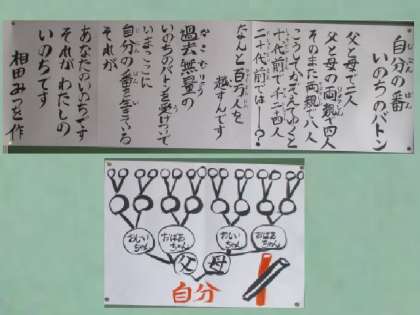 自分の番
いのちのバトン
父と母で二人
父と母の両親で四人
そのまた両親で八人
こうしてかぞえてゆくと
十代前で千二十四人
二十代前では―?
なんと百万人を
越すんです
過去無量の
いのちのバトンを受けついで
いまここに
自分の番を生きている
それが
あなたのいのちです
それがわたしの
いのちです
相田みつを作
おじいちゃん
おばあちゃん
おじいちゃん
おばあちゃん
父
母
自分